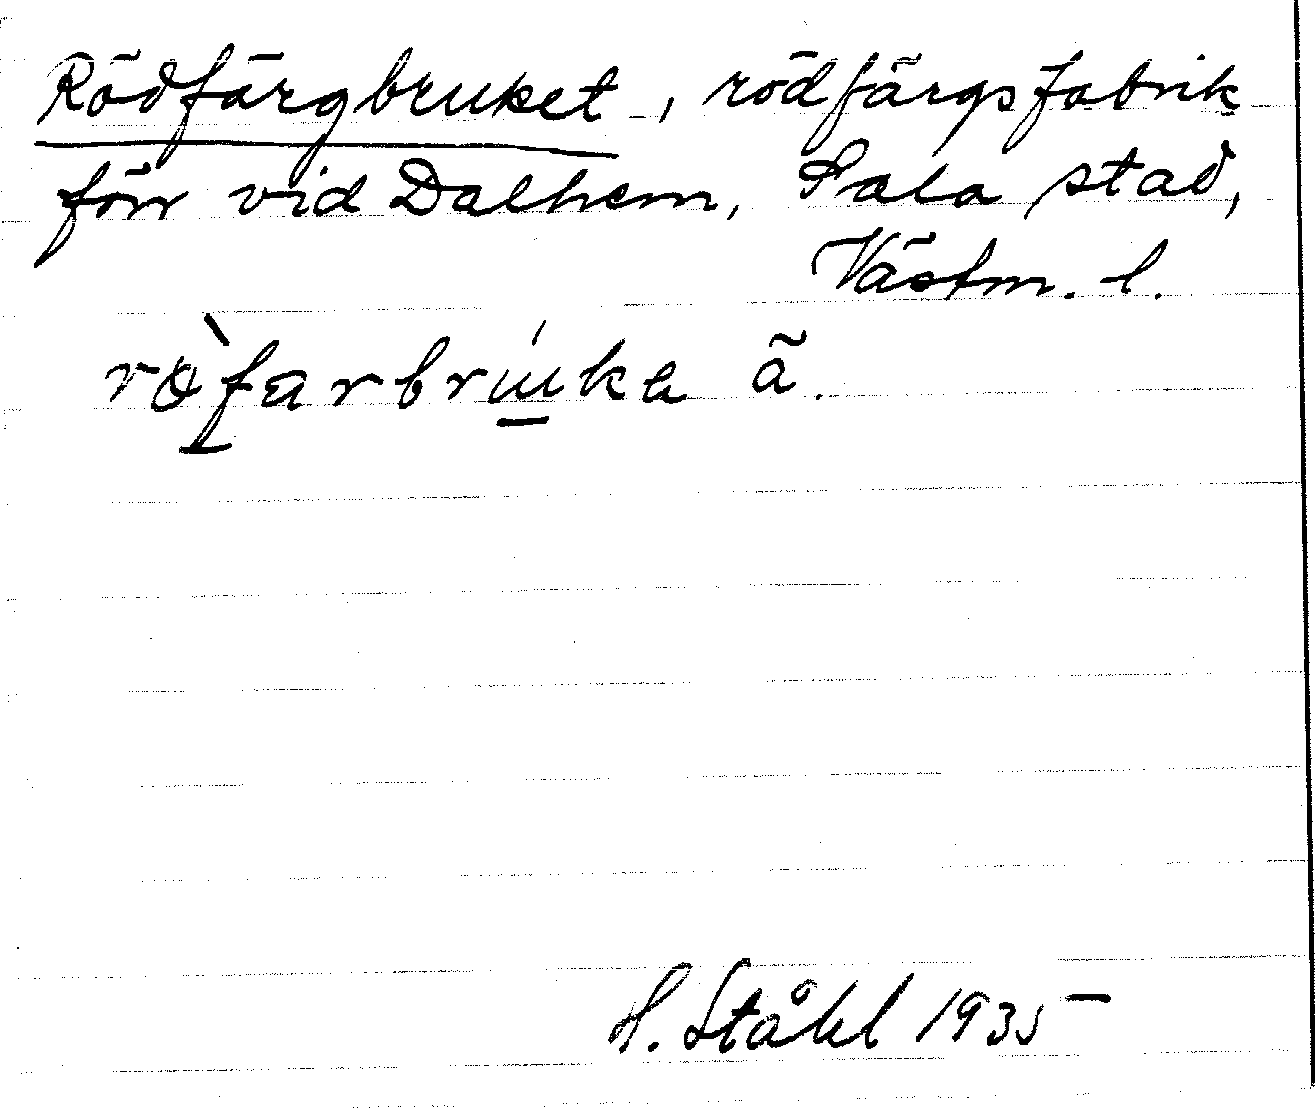 Rödfärgbruket, rödfärgsfabrik
förr vid Dalhem, Sala stad,
Västm. l.
H. Ståhl 1935